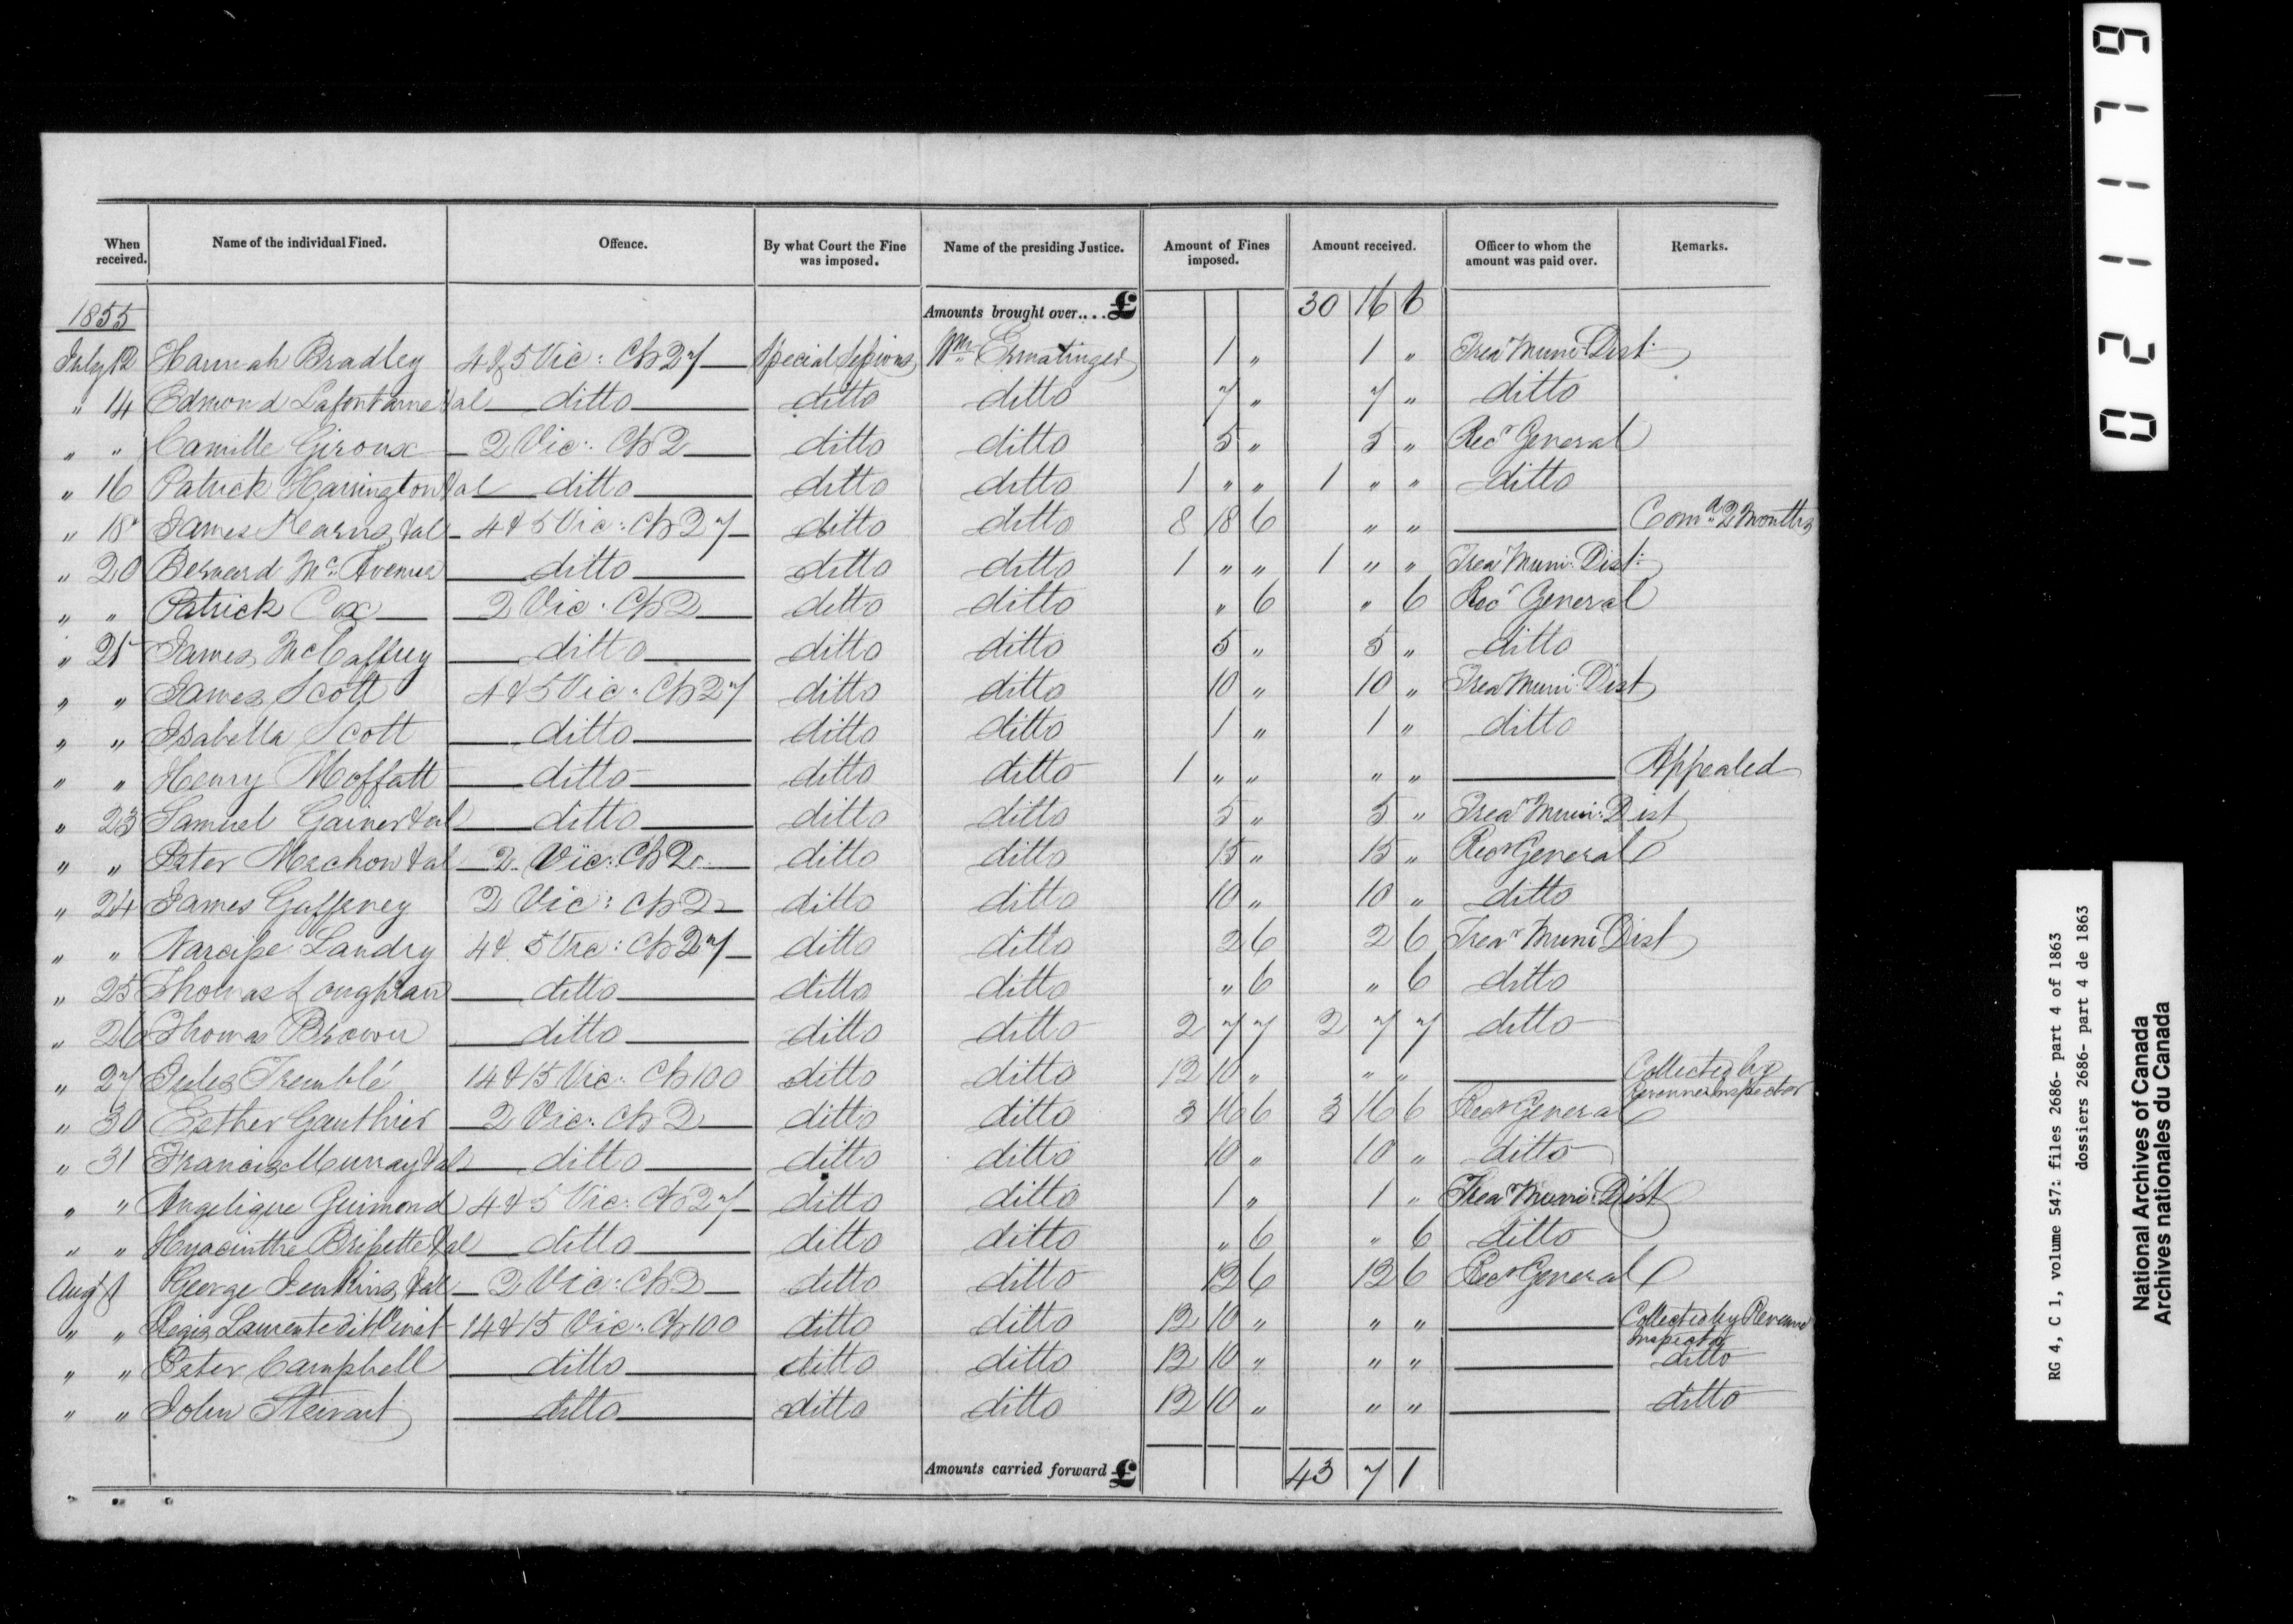 When received. Name of the individual Fined. Offence. By what Court the Fine was imposed. Name of the presiding Justice. Amount of Fines imposed. Amount received. Officer to whom the amount was paid over. Remarks.
1855 Amounts brought over.... £ 30 16 6
July 12 Hannah Bradley 4 & 5 Vic: Ch 27 Special Sessions Wm Ermatinger 1 " 1 " Trear Muni: Dist:
" 14 Edmond Lafontaine & al ditto ditto ditto 7 " 7 " ditto
" " Camille Giroux 2 Vic: Ch 2 ditto ditto 5 " 5 " Recr General
" 16 Patrick Harrington & al ditto ditto ditto 1 " " 1 " " ditto
" 18 James Kearns & al 4 & 5 Vic: Ch 27 ditto ditto 8 18 6 " " Comd 2 Months
" 20 Bernard Mc ditto ditto ditto 1 " " 1 " " Trear Muni: Dist:
" " Patrick Cox 2 Vic: Ch 2 ditto ditto " 6 " 6 Recr General
" 21 James McCaffrey ditto ditto ditto 5 " 5 " ditto
" " James Scott 4 & 5 Vic: Ch 27 ditto ditto 10 " 10 " Trear Muni: Dist
" " Isabella Scott ditto ditto ditto 1 " 1 " ditto
" " Henry Moffatt ditto ditto ditto 1 " " " " Appealed
" 23 Samuel Gainer & al ditto ditto ditto 5 " 5 " Trear Muni: Dist
" " Peter & al 2 Vic: Ch 2 ditto ditto 15 " 15 " Recr General
" 24 James Gaffeney 2 Vic: Ch 2 ditto ditto 10 " 10 " ditto
" " Narcisse Landry 4 & 5 Vic: Ch 27 ditto ditto 2 6 2 6 Trear Muni Dist
" 25 Thomas Loughran ditto ditto ditto " 6 " 6 ditto
" 26 Thomas Brown ditto ditto ditto 2 7 7 2 7 7 ditto
" 27 Jules Tremblé 14 & 15 Vic: Ch 100 ditto ditto 12 10 " " " Collected by
Revenue Inspector
" 30 Esther Gauthier 2 Vic: Ch 2 ditto ditto 3 16 6 3 16 6 Recr General
" 31 Francis Murray & al ditto ditto ditto 10 " 10 " ditto
" " Angelique Guimond 4 & 5 Vic: Ch 27 ditto ditto 1 " 1 " Trear Muni: Dist
" " Hyacinthe Brisette & al ditto ditto ditto " 6 " 6 ditto
Augt 1 George Jenkins & al 2 Vic: Ch 2 ditto ditto 12 6 12 6 Recr General
" " Regis Laurente dit Vinet 14 & 15 Vic: Ch 100 ditto ditto 12 10 " " " Collected by Revenue
Inspector
" " Peter Campbell ditto ditto ditto 12 10 " " " ditto
" " John Stewart ditto ditto ditto 12 10 " " " ditto
Amounts carried forward £ 43 7 1
021179
RG 4, C 1, volume 547: files 2686- part 4 of 1863
dossiers 2686- part 4 de 1863
National Archives of Canada
Archives nationales du Canada